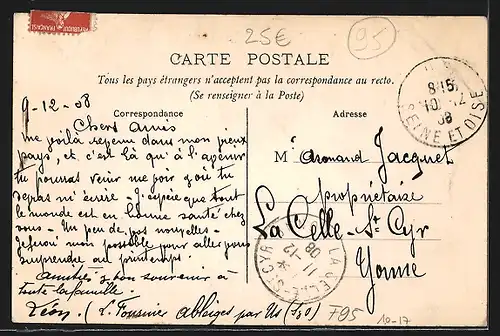 25€
95
CARTE POSTALE
Tous les pays étrangers n'acceptent pas la correspondance au recto.
(Se renseigner à la Poste)
9-12-08
Correspondance
Adresse
Chers Amis
me voilà revenu dans mon vieux
pays, et c'est là qu'à l'avenir
tu pourras venir me voir où tu
m'écrire - J'espère que tout
le monde est en bonne santé chez
vous - Un peu de vos nouvelles -
Je ferai mon possible pour aller vous
surprendre au printemps.
Amitiés & bon souvenir à
toute la famille.
Léon, (L. Fournier Ableiges par Us (S&O)
Mr Armand Jacquet
propriétaire
La Celle-St-Cyr
Yonne
8H15
10-12
08
SEINE ET OISE
LA CELLE-ST-CYR
11-12
08
F95
10-17